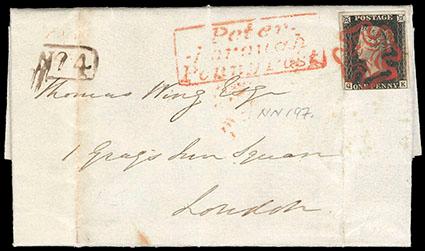 Peter-
borough
Penny Post
No. 4
POSTAGE
ONE PENNY
G K
Thomas Wing Esqr
NN197.
1 Grays Inn Square
London